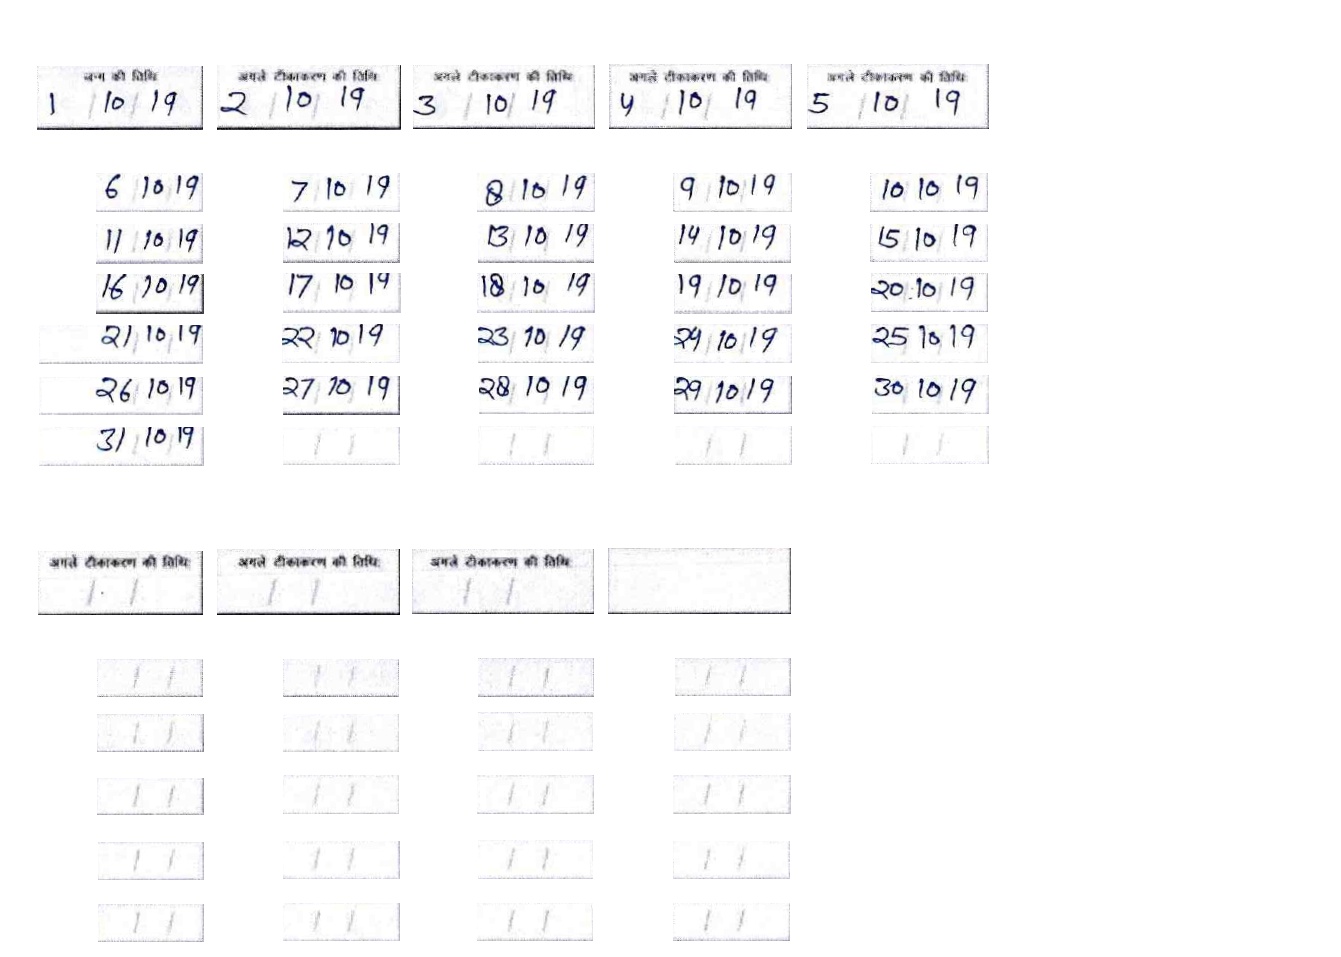 जन्म की तिथि: अगले टीकाकरण की तिथि: अगले टीकाकरण की तिथि: अगले टीकाकरण की तिथि: अगले टीकाकरण की तिथि:
1 / 10 / 19 2 / 10 / 19 3 / 10 / 19 4 / 10 / 19 5 / 10 / 19
6 / 10 / 19 7 / 10 / 19 8 / 10 / 19 9 / 10 / 19 10 / 10 / 19
11 / 10 / 19 12 / 10 / 19 13 / 10 / 19 14 / 10 / 19 15 / 10 / 19
16 / 10 / 19 17 / 10 / 19 18 / 10 / 19 19 / 10 / 19 20 / 10 / 19
21 / 10 / 19 22 / 10 / 19 23 / 10 / 19 24 / 10 / 19 25 / 10 / 19
26 / 10 / 19 27 / 10 / 19 28 / 10 / 19 29 / 10 / 19 30 / 10 / 19
31 / 10 / 19 / / / / / / / /
अगले टीकाकरण की तिथि: अगले टीकाकरण की तिथि: अगले टीकाकरण की तिथि:
/ / / / / /
/ / / / / / / /
/ / / / / / / /
/ / / / / / / /
/ / / / / / / /
/ / / / / / / /